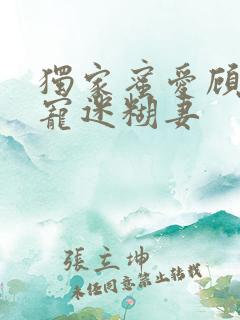 獨家蜜愛顧
寵迷糊妻
張立坤
未經同意禁止轉載